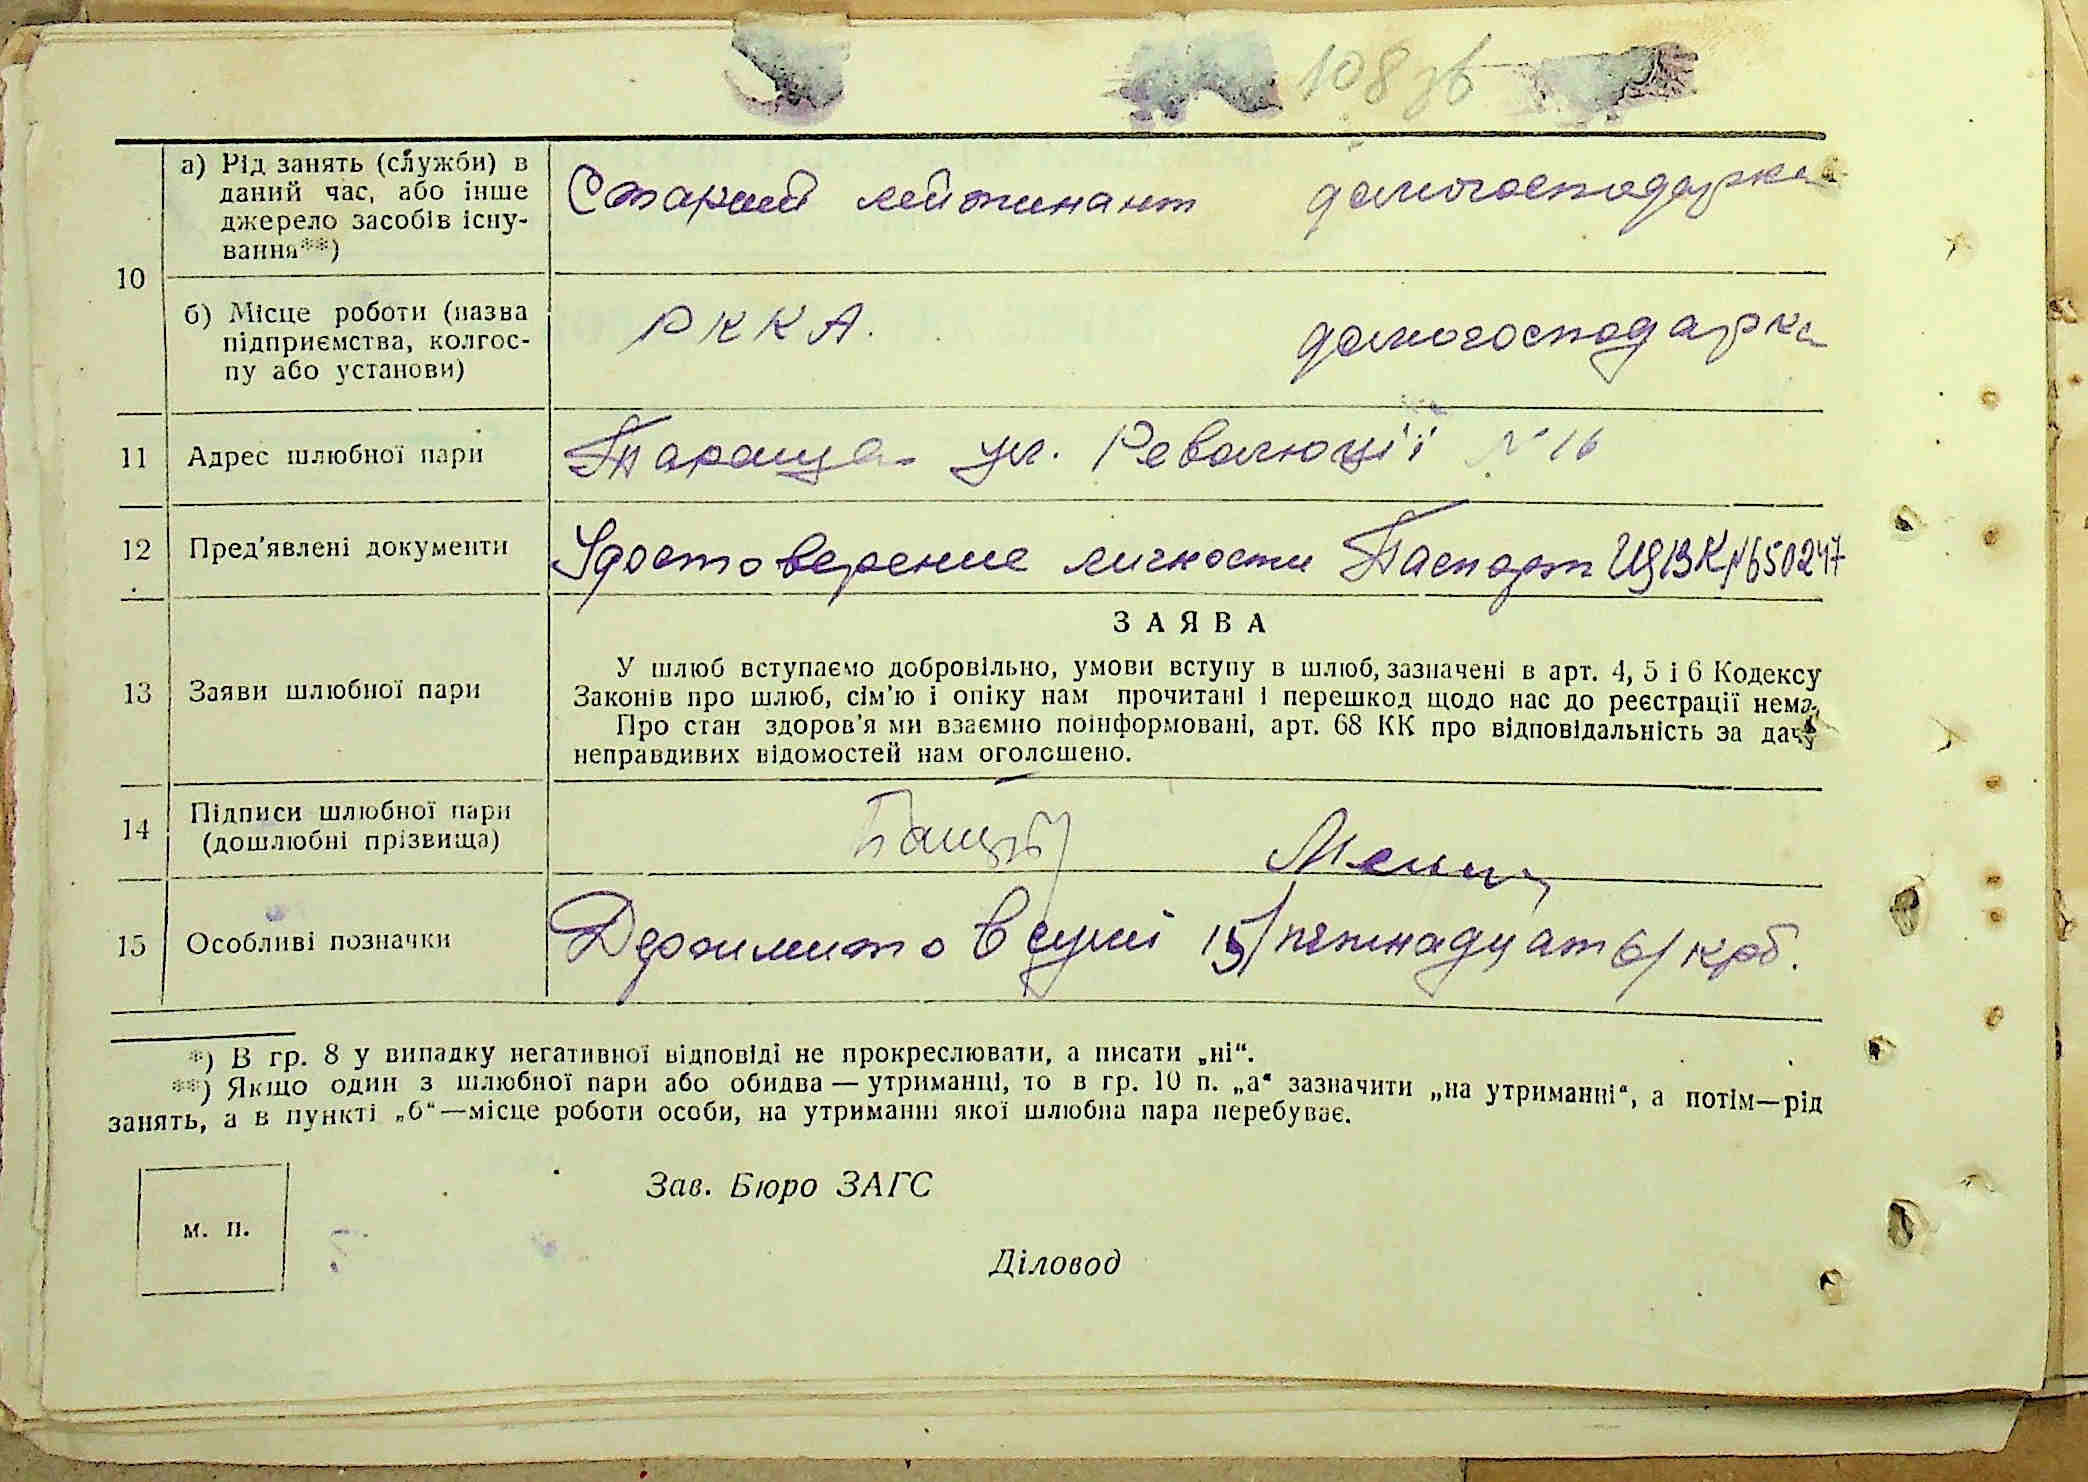 108 зв
10
а) Рід занять (служби) в
даний час, або інше
джерело засобів існу-
вання**)
Старший лейтинант домогосподарка
б) Місце роботи (назва
підприємства, колгос-
пу або установи)
РККА. домогосподарка
11 Адрес шлюбної пари Тараща ул. Революції № 16
12 Пред'явлені документи Удостоверение личности Паспорт №650247
13 Заяви шлюбної пари
ЗАЯВА
У шлюб вступаємо добровільно, умови вступу в шлюб, зазначені в арт. 4, 5 і 6 Кодексу
Законів про шлюб, сім'ю і опіку нам прочитані і перешкод щодо нас до реєстрації нема.
Про стан здоров'я ми взаємно поінформовані, арт. 68 КК про відповідальність за дачу
неправдивих відомостей нам оголошено.
14 Підписи шлюбної пари
(дошлюбні прізвища)
15 Особливі позначки Держмито в сумі 15/пятнадцать/ крб.
*) В гр. 8 у випадку негативної відповіді не прокреслювати, а писати „ні“.
**) Якщо один з шлюбної пари або обидва — утриманці, то в гр. 10 п. „а“ зазначити „на утриманні“, а потім—рід
занять, а в пункті „б“—місце роботи особи, на утриманні якої шлюбна пара перебуває.
Зав. Бюро ЗАГС
м. п.
Діловод